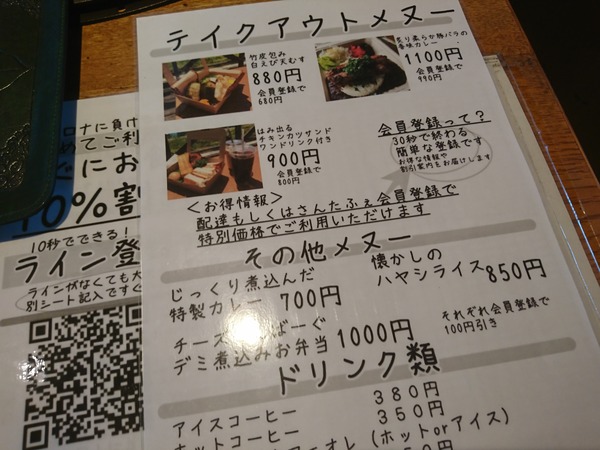 テイクアウトメヌー
竹皮包み
白えび天むす
880円
会員登録で
680円
炙り柔らか豚バラの
香味カレー
1100円
会員登録で
990円
はみ出る
チキンカツサンド
ワンドリンク付き
900円
会員登録で
800円
会員登録って?
30秒で終わる
簡単な登録です
お得な情報や
割引案内をお届けします
<お得情報>
配達もしくはさんたふぇ会員登録で
特別価格でご利用いただけます
その他メヌー
じっくり煮込んだ
特製カレー 700円
懐かしの
ハヤシライス 850円
チーズ ばーぐ
デミ煮込みお弁当 1000円
それぞれ会員登録で
100円引き
ドリンク類
アイスコーヒー 380円
ホットコーヒー 350円
ーオレ (ホットorアイス)
ロナに負け
めてご利
ぐにお
10%割
10秒でできる!
ライン登
ラインがなくても大
別シート記入ですぐ